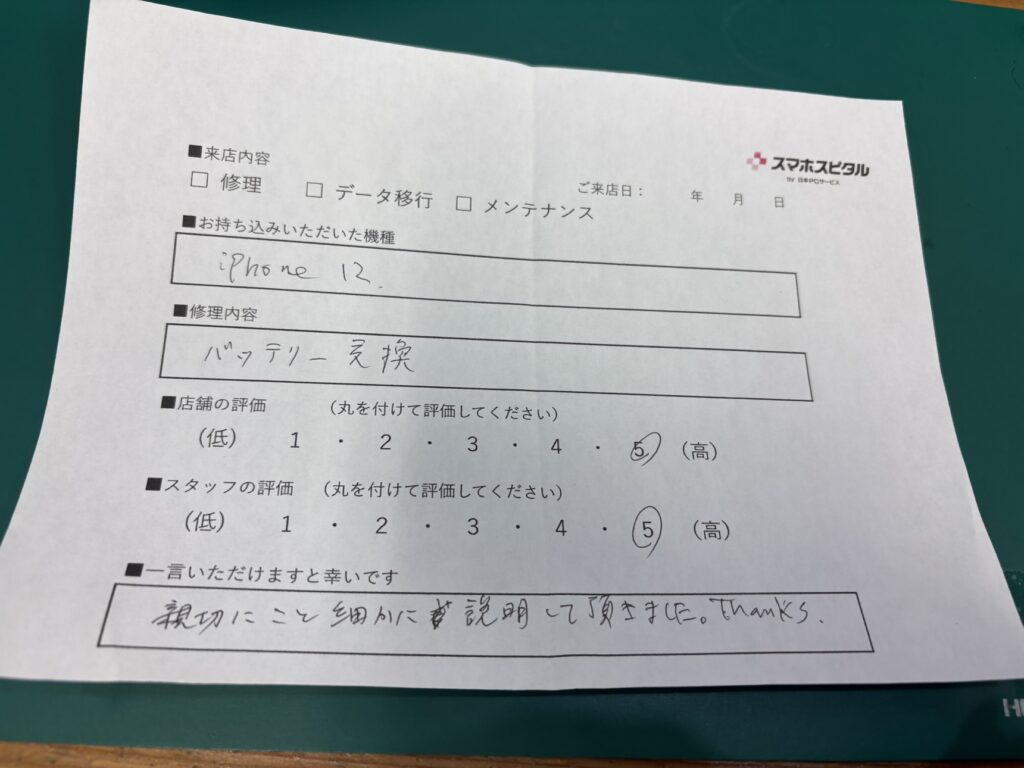 ■来店内容
スマホスピタル
by 日本PCサービス
□ 修理 □ データ移行 □ メンテナンス
ご来店日： 年 月 日
■お持ち込みいただいた機種
iPhone 12.
■修理内容
バッテリー交換
■店舗の評価 （丸を付けて評価してください）
（低） 1 ・ 2 ・ 3 ・ 4 ・ 5 （高）
■スタッフの評価 （丸を付けて評価してください）
（低） 1 ・ 2 ・ 3 ・ 4 ・ 5 （高）
■一言いただけますと幸いです
親切にこと細かに説明して頂きました。Thanks.